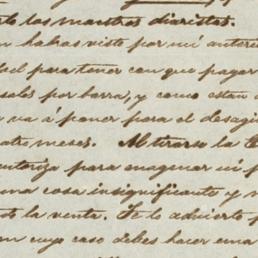 los maestros diaristas.
habras visto por mi anterior
para tener con que pagar
soles por barra, y como estan
va á poner para el desagü
meses. Al tirarse la
para enagenar mi p
una cosa insignificante y n
la venta. Te lo advierto p
en cuyo caso debes hacer una